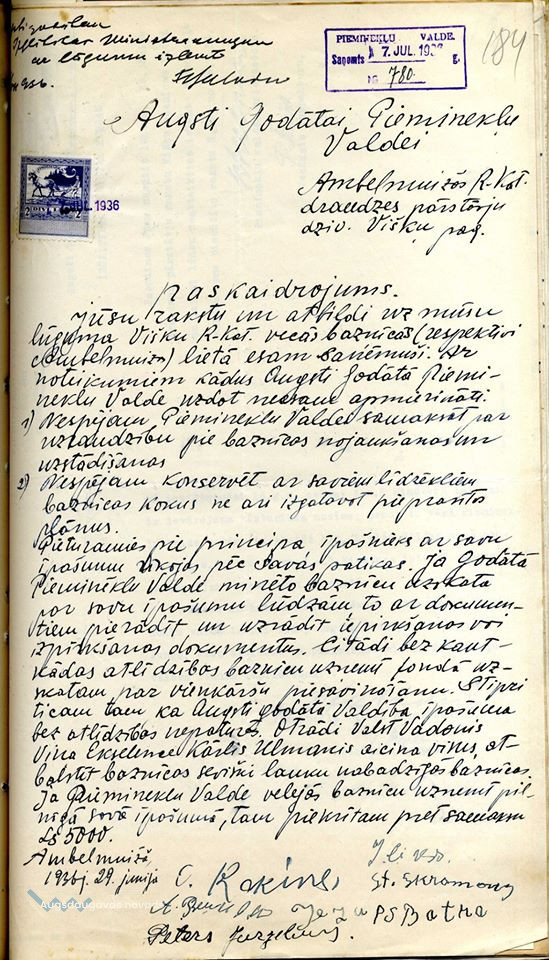 Izglītības Ministerijungam
ar lūgumu izlemt
PIEMINEKĻU VALDE.
Saņemts 7. JUL. 1936 g.
№ 780.
184
Augsti Godātai Pieminekļu
Valdei
Ambeļmuižas R-Kat.
draudzes pārstāvju
dzīv. Višķu pag.
2 DIVI LATI 2
7. JUL. 1936
Paskaidrojums.
Jūsu rakstu un atbildi uz mūsu
lūguma Višķu R-Kat. vecās baznīcas (respektivi
Ambeļmuiža) lietā esam saņēmuši. Ar
noteikumiem kādus Augsti Godātā Piemi-
nekļu Valde uzdot nevaram apmierināti.
1) Nespējam Pieminekļu Valdei samaksāt par
uzraudzību pie baznīcas nojaukšanas un
uzstādīšanas
2) Nespējam konservēt ar saviem līdzekļiem
baznīcas kokus ne arī izgatavot pieprasītos
plānus.
Pieturamies pie principa, īpašnieks ar savu
īpašumu rīkojas pēc savas patikas. Ja Godātā
Pieminekļu Valde minēto baznīcu uzskata
par savu īpašumu lūdzam to ar dokumen-
tiem pierādīt un uzrādīt iepirkšanas vai
izpirkšanas dokumentus. Citādi bez kaut-
kādas atlīdzības baznīcu uzņemt fondā uz-
skatam par vienkāršu piesavināšanu. Stipri
ticam tam ka Augsti godātā Valdība īpašuma
bez atlīdzības nepaturēs. Otrādi Valst Vadonis
Viņa Ekselence Kārlis Ulmanis aicina visus at-
balstīt baznīcas sevišķi lauku nabadzīgās baznīcas.
Ja Pieminekļu Valde vēlējās baznīcu uzņemt pil-
nīgā savā īpašumā, tam piekrītam pret samaksu
Ls 5000.
Ambeļmuižā,
1936 j. 29. jūnijā
St. Skromony
P S Batņa
Peters
Augšdaugavas nova